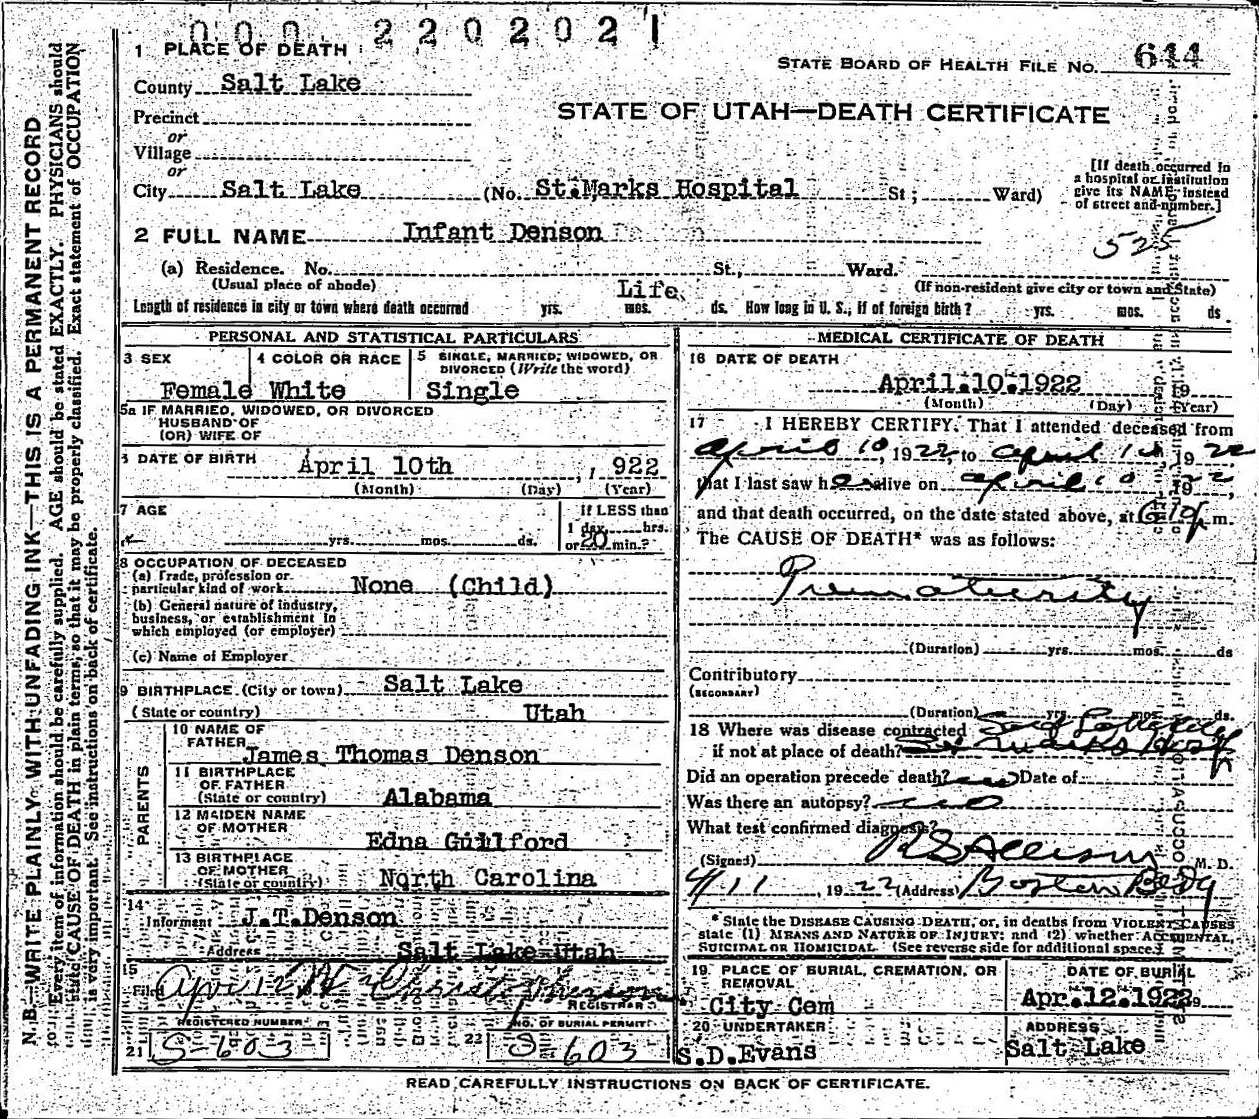 000 2202021
1 PLACE OF DEATH
STATE BOARD OF HEALTH FILE NO. 644
County Salt Lake
STATE OF UTAH—DEATH CERTIFICATE
Precinct
or
Village
or
City Salt Lake (No. St.Marks Hospital St; Ward)
[If death occurred in
a hospital or institution
give its NAME instead
of street and number.]
2 FULL NAME Infant Denson
525
(a) Residence. No. St., Ward.
(Usual place of abode) (If non-resident give city or town and State)
Life
Length of residence in city or town where death occurred yrs. mos. ds. How long in U. S., if of foreign birth? yrs. mos. ds
PERSONAL AND STATISTICAL PARTICULARS
3 SEX
Female
4 COLOR OR RACE
White
5 SINGLE, MARRIED, WIDOWED, OR
DIVORCED (Write the word)
Single
5a IF MARRIED, WIDOWED, OR DIVORCED
HUSBAND OF
(OR) WIFE OF
6 DATE OF BIRTH April 10th , 922
(Month) (Day) (Year)
7 AGE
yrs. mos. ds.
If LESS than
1 day, hrs.
or 20 min.?
8 OCCUPATION OF DECEASED
(a) Trade, profession or
particular kind of work None (Child)
(b) General nature of industry,
business, or establishment in
which employed (or employer)
(c) Name of Employer
9 BIRTHPLACE (City or town) Salt Lake
(State or country) Utah
PARENTS
10 NAME OF
FATHER James Thomas Denson
11 BIRTHPLACE
OF FATHER
(State or country) Alabama
12 MAIDEN NAME
OF MOTHER
Edna Guilford
13 BIRTHPLACE
OF MOTHER
(State or country) North Carolina
14
Informant J.T.Denson
Address Salt Lake Utah
15
Filed Apr 12
REGISTRAR
REGISTERED NUMBER
NO. OF BURIAL PERMIT
21 S-603
22 S 603
MEDICAL CERTIFICATE OF DEATH
16 DATE OF DEATH
April.10.1922 19
(Month) (Day) (Year)
17 I HEREBY CERTIFY, That I attended deceased from
April 10, 1922, to April 10 1922
that I last saw her alive on April 10 1922,
and that death occurred, on the date stated above, at 610 p m.
The CAUSE OF DEATH* was as follows:
Prematurity
(Duration) yrs. mos. ds
Contributory
(SECONDARY)
(Duration) yrs. mos. ds.
18 Where was disease contracted
if not at place of death? St Marks Hosp
Did an operation precede death? no Date of
Was there an autopsy? no
What test confirmed diagnosis?
(Signed) R S Allison M. D.
4/11, 1922 (Address) Boston Bldg
* State the DISEASE CAUSING DEATH, or, in deaths from VIOLENT CAUSES
state (1) MEANS AND NATURE OF INJURY; and (2) whether ACCIDENTAL,
SUICIDAL OR HOMICIDAL. (See reverse side for additional space.)
19 PLACE OF BURIAL, CREMATION, OR
REMOVAL
City Cem
DATE OF BURIAL
Apr.12.1922
20 UNDERTAKER
S.D.Evans
ADDRESS
Salt Lake
READ CAREFULLY INSTRUCTIONS ON BACK OF CERTIFICATE.
N. B.—WRITE PLAINLY WITH UNFADING INK—THIS IS A PERMANENT RECORD
Every item of information should be carefully supplied. AGE should be stated EXACTLY. PHYSICIANS should
state CAUSE OF DEATH in plain terms, so that it may be properly classified. Exact statement of OCCUPATION
is very important. See instructions on back of certificate.